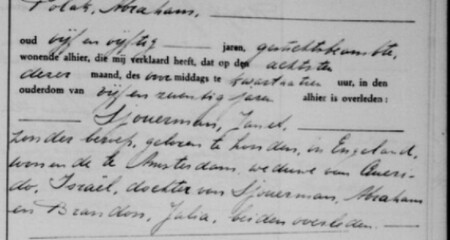 Polak, Abraham,
oud vijf en vijftig jaren, gerechtsbeambte,
wonende alhier, die mij verklaard heeft, dat op den achtsten
dezer maand, des voormiddags te kwart uur, in den
ouderdom van vijf en zeventig jaren alhier is overleden:
Sjouerman, Janet,
zonder beroep, geboren te Londen, in Engeland,
wonende te Amsterdam, weduwe van Queri-
do, Israël, dochter van Sjouerman, Abraham
en Brandon, Julia, beiden overleden.